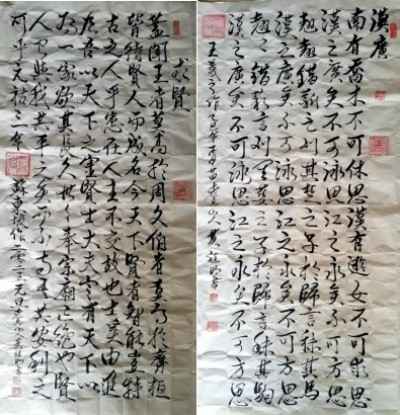 漢廣
南有喬木不可休思漢有遊女不可求思
漢之廣矣不可泳思江之永矣不可方思
翹翹錯薪言刈其楚之子於歸言秣其馬
漢之廣矣不可泳思江之永矣不可方思
翹翹錯薪言刈其蔞之子於歸言秣其駒
漢之廣矣不可泳思江之永矣不可方思
求賢
蓋聞王者莫高於周文伯者莫高於齊桓
皆待賢人而成名今天下賢者智能豈特
古之人乎患在人主不交故也士奚由進
今吾以天之靈賢士大夫定有天下以
為一家欲其長久世世奉宗廟亡絕也賢
人已與我共平之矣而不與吾共安利之
可乎